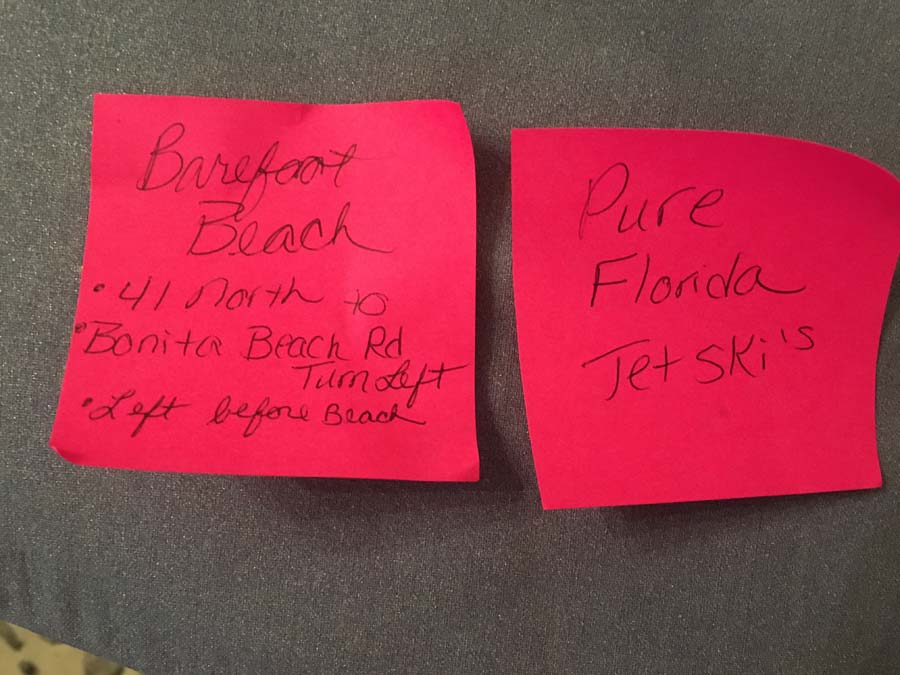 Barefoot
Beach
• 41 North to
• Bonita Beach Rd
Turn Left
• Left before Beach
Pure
Florida
Jet Ski's